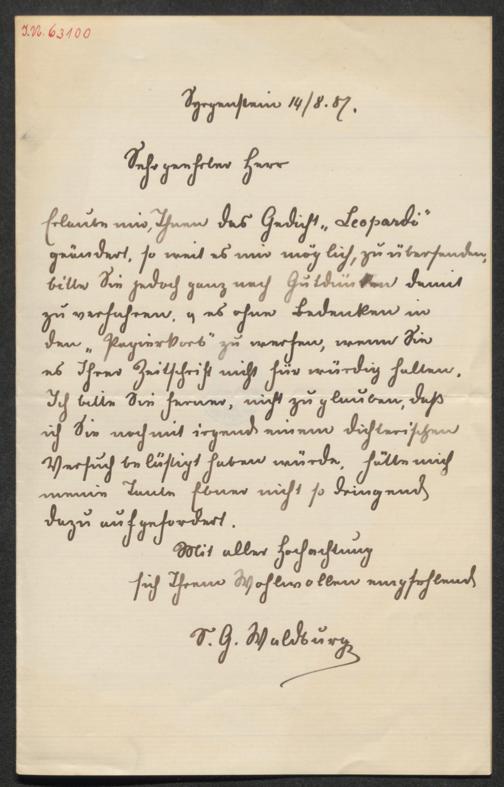 J.N. 63100
Syrgenstein 14/8.87.
Sehr geehrter Herr
Erlaube mir, Ihnen das Gedicht „Leopardi“
geändert, so weit es mir möglich, zu übersenden,
bitte Sie jedoch ganz nach Gutdünken damit
zu verfahren, u es ohne Bedenken in
den „Papierkorb“ zu werfen, wenn Sie
es Ihrer Zeitschrift nicht für würdig halten.
Ich bitte Sie ferner, nicht zu glauben, daß
ich Sie noch mit irgend einem dichterischen
Versuch belästigt haben würde, hätte mich
meine Tante Ebner nicht so dringend
dazu aufgefordert.
Mit aller Hochachtung
sich Ihrem Wohlwollen empfehlend
S. G. Waldburg